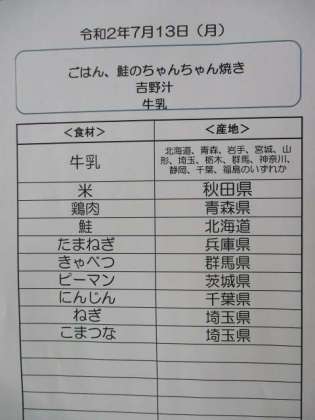 令和2年7月13日（月）
ごはん、鮭のちゃんちゃん焼き
吉野汁
牛乳
＜食材＞ ＜産地＞
牛乳 北海道、青森、岩手、宮城、山
形、埼玉、栃木、群馬、神奈川、
静岡、千葉、福島のいずれか
米 秋田県
鶏肉 青森県
鮭 北海道
たまねぎ 兵庫県
きゃべつ 群馬県
ピーマン 茨城県
にんじん 千葉県
ねぎ 埼玉県
こまつな 埼玉県